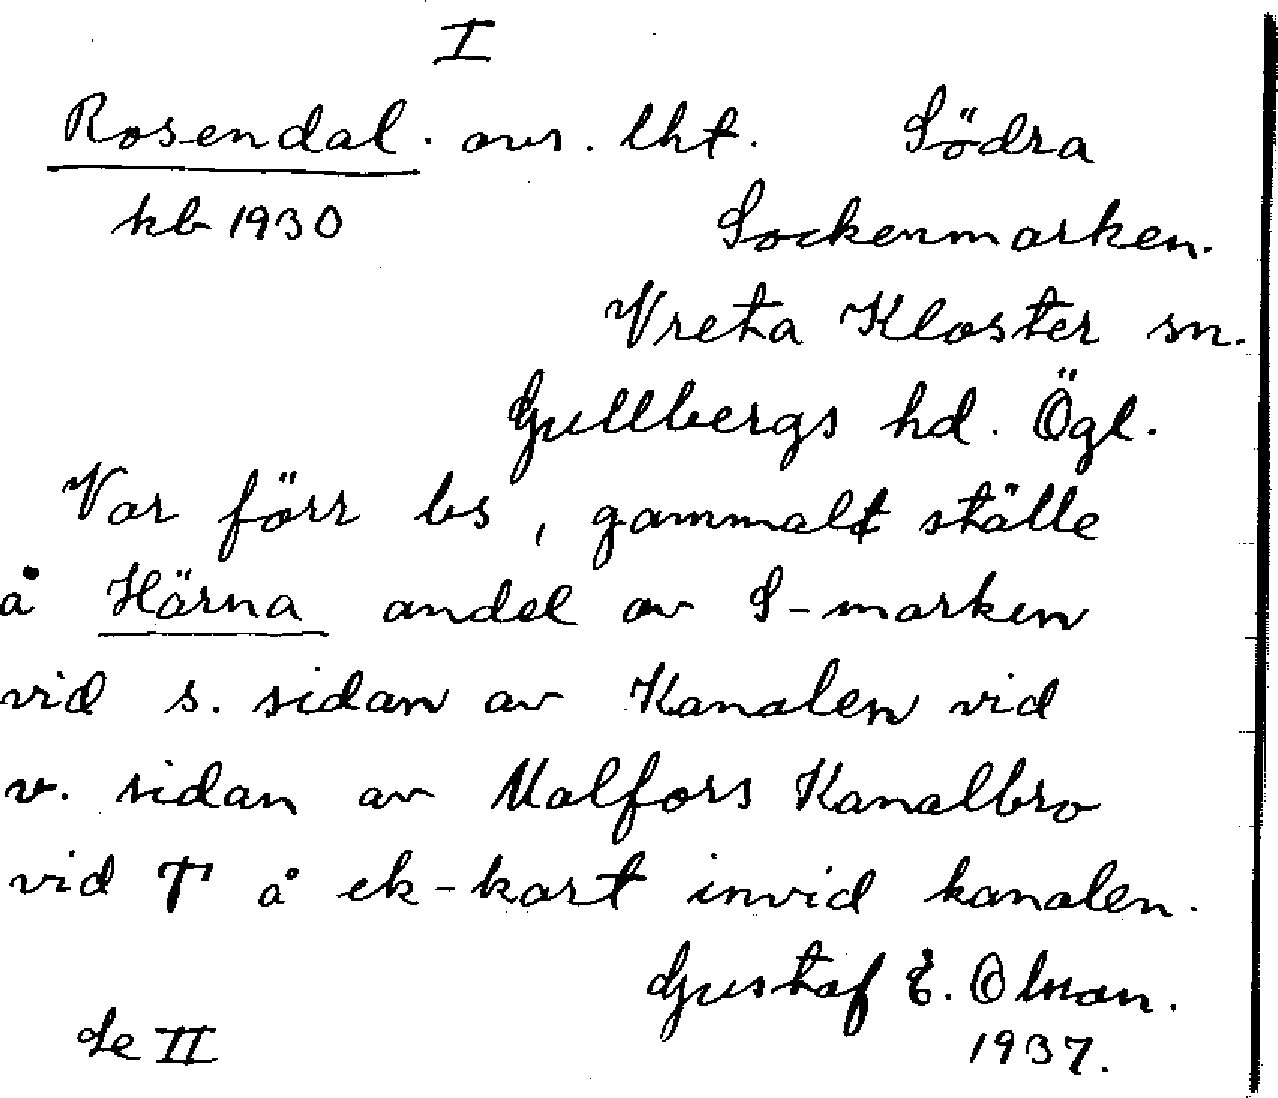 I
Rosendal. avs. lht. Södra
kb 1930 Sockenmarken.
Vreta Kloster sn.
Gullbergs hd. Ögl.
Var förr bs, gammalt ställe
å Härna andel av S-marken
vid s. sidan av Kanalen vid
v. sidan av Malfors Kanalbro
vid T å ek-kart invid kanalen.
Gustaf E. Olsson.
Se II 1937.